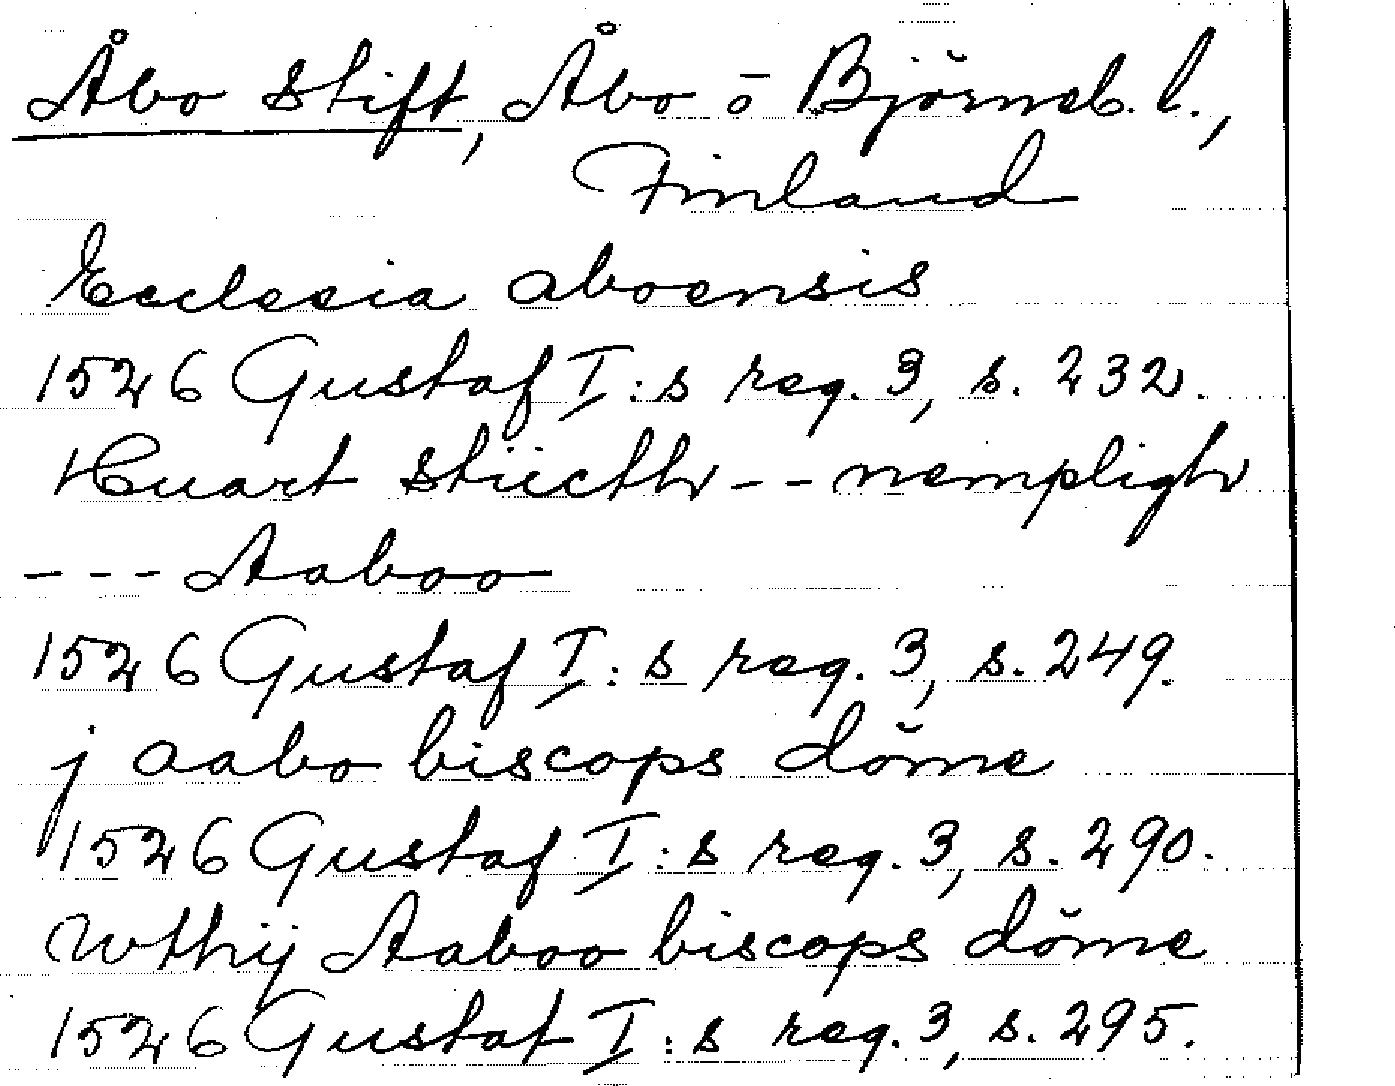 Åbo stift, Åbo o Björneb. l.,
Finland
Ecclesia aboensis
1526 Gustaf I:s reg. 3, s. 232.
Huart sticth -- nempligh
--- Aaboo
1526 Gustaf I:s reg. 3, s. 249.
j aabo biscops döme
1526 Gustaf I:s reg. 3, s. 290.
Wthij Aaboo biscops döme
1526 Gustaf I:s reg. 3, s. 295.